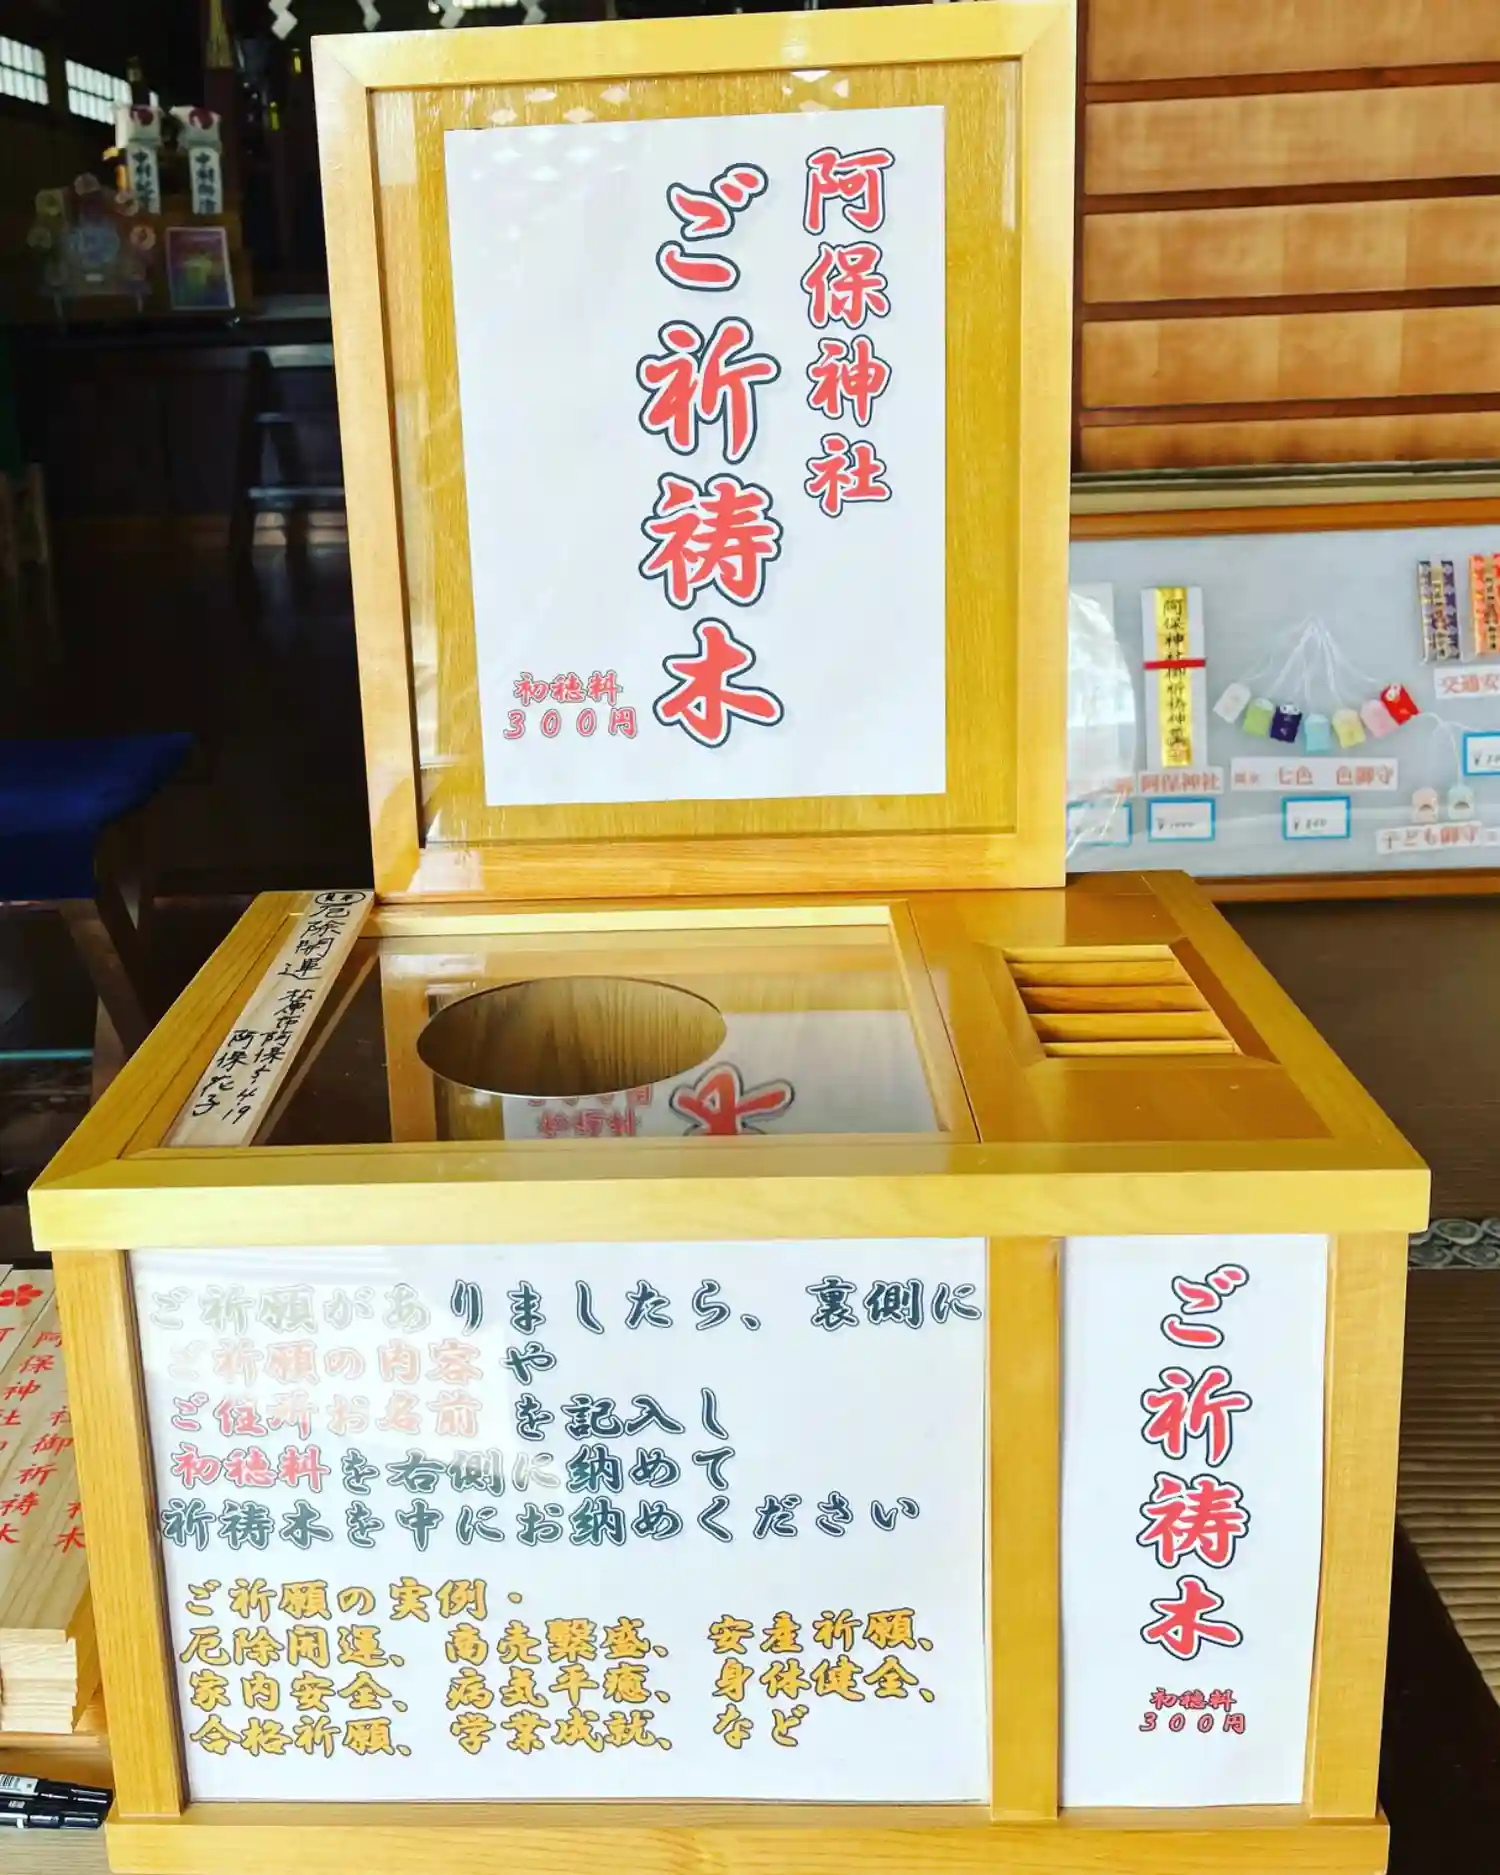 阿保神社
ご祈祷木
初穂料
３００円
厄除開運
松原市阿保5.4.19
阿保花子
ご祈願がありましたら、裏側に
ご祈願の内容や
ご住所お名前を記入し
初穂料を右側に納めて
祈祷木を中にお納めください
ご祈願の実例・
厄除開運、商売繫盛、安産祈願、
家内安全、病気平癒、身体健全、
合格祈願、学業成就、など
ご祈祷木
初穂料
３００円
阿保神社御祈祷木
阿保神社御祈祷神璽
阿保神社
七色 色御守
交通安
子ども御守